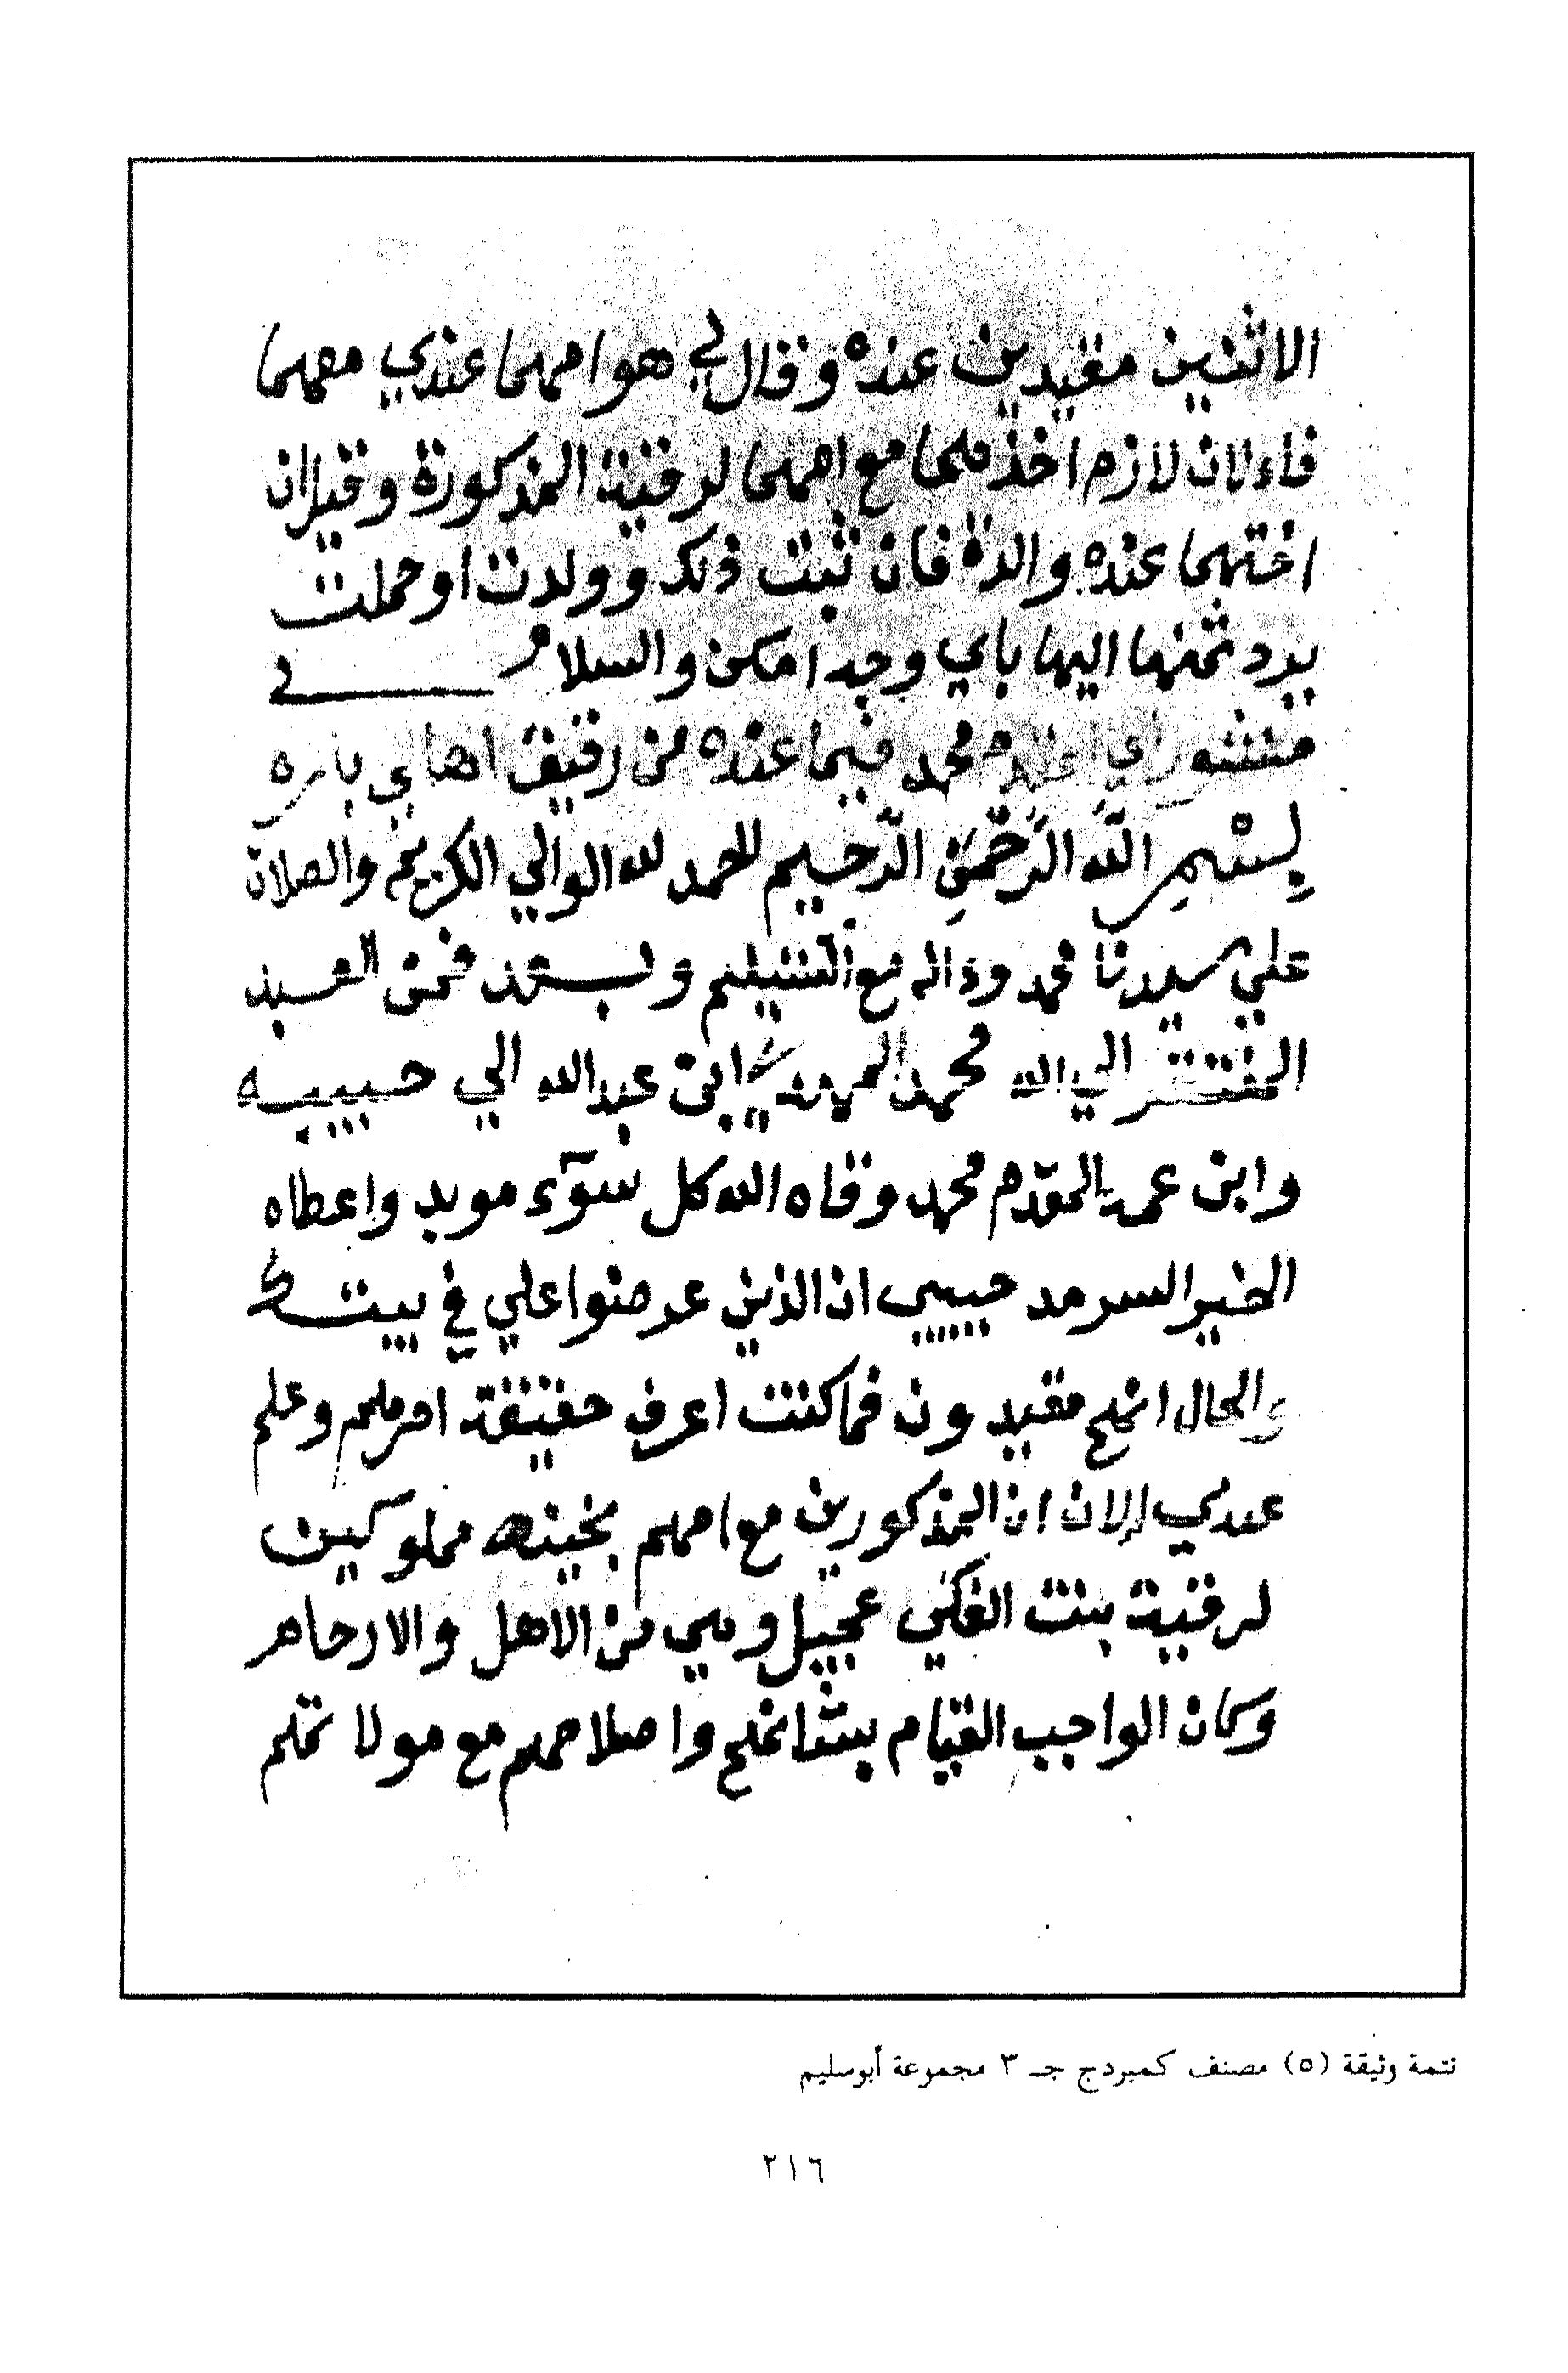 الاثنين مقيدين عنده وقال لي هوامهما عندي معهما
فاءلان لازم اخذهما مع امهما لرقية المذكورة وقيل ان
اختهما عنده والدة فان ثبت ذلك وولدت او حملت
يرد ثمنها اليها باي وجه امكن والسلام في
منشوراي محمد فيما عنده من رقيق اهالي بارة
بِسْمِ اللَّه الرَّحْمَنِ الرَّحيم الحمد لله الوالي الكريم والصلاة
علي سيدنا محمد وءاله مع التسليم وبعد فمن العبد
المفتقر الي الله محمد المهدي ابن عبدالله الي حبيبه
وابن عمه المقدّم محمد وقاه الله كل سوٓء موبد واعطاه
الخير السرمد حبيبي ان الذين عرضوا علي في بيتك
والحال انهم مقيدون فما كنت اعرف حقيقة امرهم وعلم
عندي إلان ان المذكورين مع امهم بخيته مملوكين
لرقية بنت الفكي عجيل وهي من الاهل والارحام
وكان الواجب القيام بشانهم واصلاحهم مع مولاتهم
تتمة وثيقة (٥) مصنف كمبردج جـ ٣ مجموعة أبوسليم
٢١٦